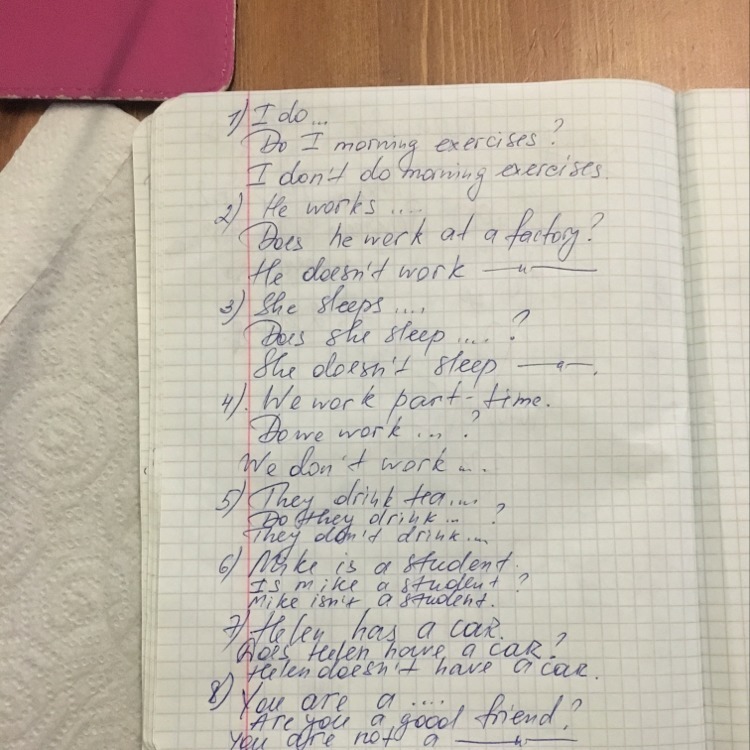 1) I do...
Do I morning exercises?
I don't do morning exercises.
2) He works ....
Does he work at a factory?
He doesn't work —"—
3) She sleeps ....
Does she sleep .... ?
She doesn't sleep —"—.
4). We work part-time.
Do we work ... ?
We don't work ...
5) They drink tea....
Do they drink ... ?
They don't drink ...
6) Mike is a student.
Is mike a student ?
Mike isn't a student.
7) Helen has a car.
Does Helen have a car?
Helen doesn't have a car.
8) You are a ....
Are you a good friend?
You are not a —"—